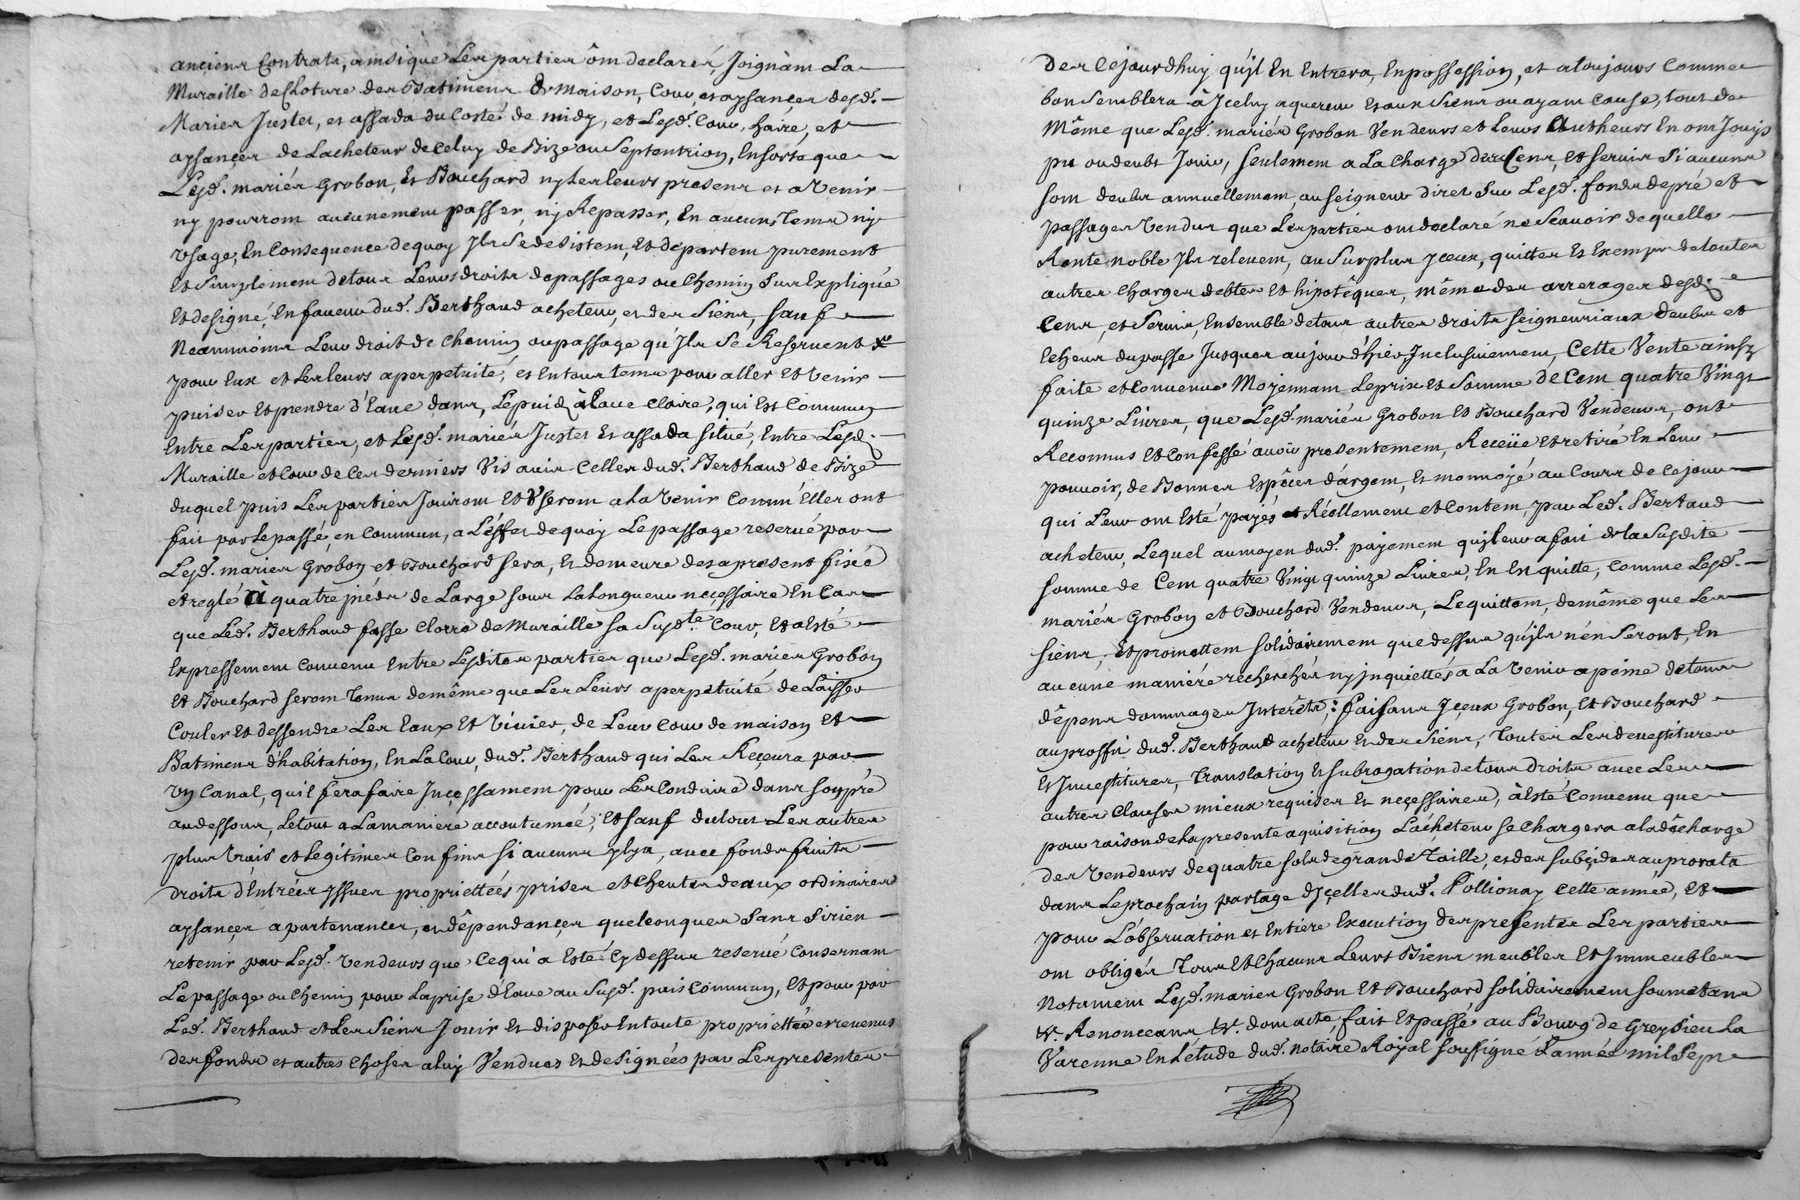 anciens Contrats, ainsi que Les parties ont declarés, Joignant La
Muraille de Cloture des Batiments & maison, Cour, et aysances desd.
Mariés Justet, et assada du Costé de midy, et Lesd. Cour, haire, et
aysances de Lacheteur de Celuy de Bize ou Septentrion, En sorte que
Lesd. mariés Grobon, Et Bouchard ny Les leurs presens et avenir
ny pourront aucunement passer, ny Repasser, En aucuns Tems ny
Usage, En Consequence de quoy Ils Se desistent, Et departent purement
Et Simplement de tous Leurs droits de passages ou Chemin Sus Expliqué
Et designé, En faveur dud. Berthaud acheteur, et des Siens, Sauf
Neantmoins Leur droit de Chemin ou passage qu'Ils Se Reservent
pour Eux et Les leurs a perpetuité, et En tous tems pour aller Et Venir
puiser Et prendre d'Eaue dans, Le puid à Eaue Claire, qui Est Commun
Entre Les parties, et Lesd. mariés Justet Et assada situé, Entre Lesd.
Muraille et Cour de Ces derniers Vis a vis Celles dud. Berthaud de Bize
duquel puis Les parties Jouiront Et Useront a La Venir Comm'Elles ont
fait par Le passé, en Commun, a L'Effet de quoy Le passage reservé par
Lesd. mariés Grobon et Bouchard sera, Et demeure des apresent fixé
et reglé à quatre pieds de Large sous La Longueur necessaire En Cas
que Led. Berthaud fasse Clorre de Muraille sa Susdte. Cour, Et a Esté
Expressement Convenu Entre Lesdites parties que Lesd. mariés Grobon
Et Bouchard seront Tenus de même que Les Leurs a perpetuité de Laisser
Couler Et dessendre Les Eaux Et Vivier, de Leur Cour de maison Et
Batimens d'habitation, En La Cour, dud. Berthaud qui Les Recevra par
Un Canal, quil fera faire Incessament pour Les Conduire dans Son pré
au dessous, Le tout a La maniere accoutumée; Et sauf du tout Les autres
plus Vrais et Legitimes Confins si aucuns y'lya, avec fonds fruits
droits d'Entrées Issues propriettées prises et Cheutes deaux ordinaires
aysances apartenances, et dêpendances quelconques Sans Si rien
retenir par Lesd. Vendeurs que Cequi a Esté Cy dessus reservé Consernant
Le passage ou Chemin pour La prise d'Eaue au Susd. puis Commun, Et pour par
Led. Berthaud et Les Siens Jouir Et disposer En toute proprietté et revenus
des fonds et autres Choses a luy Vendues Et designées par Les presentes
Des Cejourdhuy qu'il En Entrera, En possession, et a toujours Comme
bon Semblera à Iceluy aquereur Et aux Siens ou ayant Cause, tout de
Même que Lesd. mariés Grobon Vendeurs et Leurs Autheurs En ont Jouys
pu ou deubt Jouir, Seulement a La Charge des Cens, Et Servis Si aucuns
sont deubs annuellement, au seigneur direct Sur Lesd. fonds de pré et
passages Vendus que Les parties ont declaré ne Scavoir de quelle
Rente noble Ils relevent, au Surplus Iceux, quittes Et Exempts de toutes
autres Charges debtes Et hipotêques, même des arrerages desd.
Cens, et Servis, Ensemble de tous autres droits seigneuriaux deubs et
Echeus du passé Jusques aujourd'hier Inclusivement, Cette Vente ainsy
faite et Convenue Moyennant Le prix Et Somme de Cent quatre Vingt
quinze Livres, que Lesd. mariés Grobon Et Bouchard Vendeurs, ont
Reconnus Et Confessé avoir presentement, Receüe Et retiré En Leur
pouvoir, de Bonnes Espêces d'argent, Et monnoyé au Cours de Ce jour
qui Leur ont Esté payés Réellement et Content, par Led. Bertaud
acheteur, Lequel au moyen dud. payement quil leur a fait de la Susdite
somme de Cent quatre Vingt quinze Livres, En Est quitte, Comme Lesd.
mariés Grobon et Bouchard Vendeurs, Le quittent, de même que Les
siens, Et promettent solidairement que dessus qu'ils n'en Seront, En
aucune maniére recherchés ny Inquiettés a La Venir a peine de tous
dêpens dommages Interêts; faisans Iceux Grobon, Et Bouchard
au proffit dud. Berthaud acheteur Et des Siens, Toutes Les devestitures
Et Investitures, Translation Et subrogation de tous droits avec Les
autres Clauses mieux requises Et necessaires, à Esté Convenu que
pour raison de La presente aquisition L'acheteur se Chargera a La dêcharge
des Vendeurs de quatre sols de grande Taille, et des subsides au prorata
dans Le prochain partage d'Icelles dud. Pollionay Cette année, Et
pour L'observation et Entiere Execution des presentes Les parties
ont obligés Tous Et Chacuns Leurs Biens meubles Et Immeubles
Notament Lesd. mariés Grobon Et Bouchard solidairement soumetans
&. Renonceans &. dont acte, fait Et passé au Bourg de Greysieu La
Varenne En L'étude dud. Notaire Royal soussigné L'année mil Sept